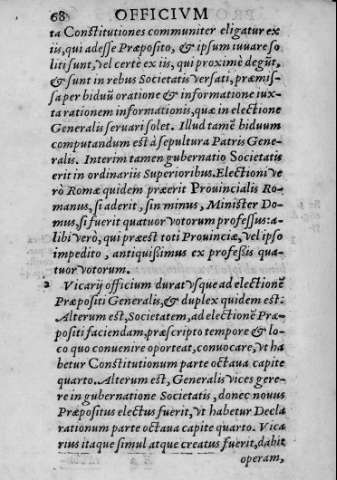 68 OFFICIVM
ta Constitutiones communiter eligatur ex
iis, qui adesse Præposito, & ipsum iuuare so
liti sunt, vel certè ex iis, qui proximè degūt,
& sunt in rebus Societatis versati, præmis-
sa per biduū oratione & informatione iux-
ta rationem informationis, quæ in electione
Generalis seruari solet. Illud tamē biduum
computandum est à sepultura Patris Gene-
ralis. Interim tamen gubernatio Societatis
erit in ordinariis Superioribus. Electioni ve
rò Romæ quidem præerit Prouincialis Ro-
manus, si aderit, sin minus, Minister Do-
mus, si fuerit quatuor votorum professus: a-
libi verò, qui præest toti Prouinciæ, vel ipso
impedito, antiquissimus ex professis qua-
tuor votorum.
2 Vicarij officium durat vsque ad electionē
Præpositi Generalis, & duplex quidem est:
Alterum est, Societatem, ad electionē Præ-
positi faciendam, præscripto tempore & lo-
co quo conuenire oporteat, conuocare, vt ha
betur Constitutionum parte octaua capite
quarto. Alterum est, Generalis vices gere-
re in gubernatione Societatis, donec nouus
Præpositus electus fuerit, vt habetur Decla
rationum parte octaua capite quarto. Vica
rius itaque simul atque creatus fuerit, dabit
operam,